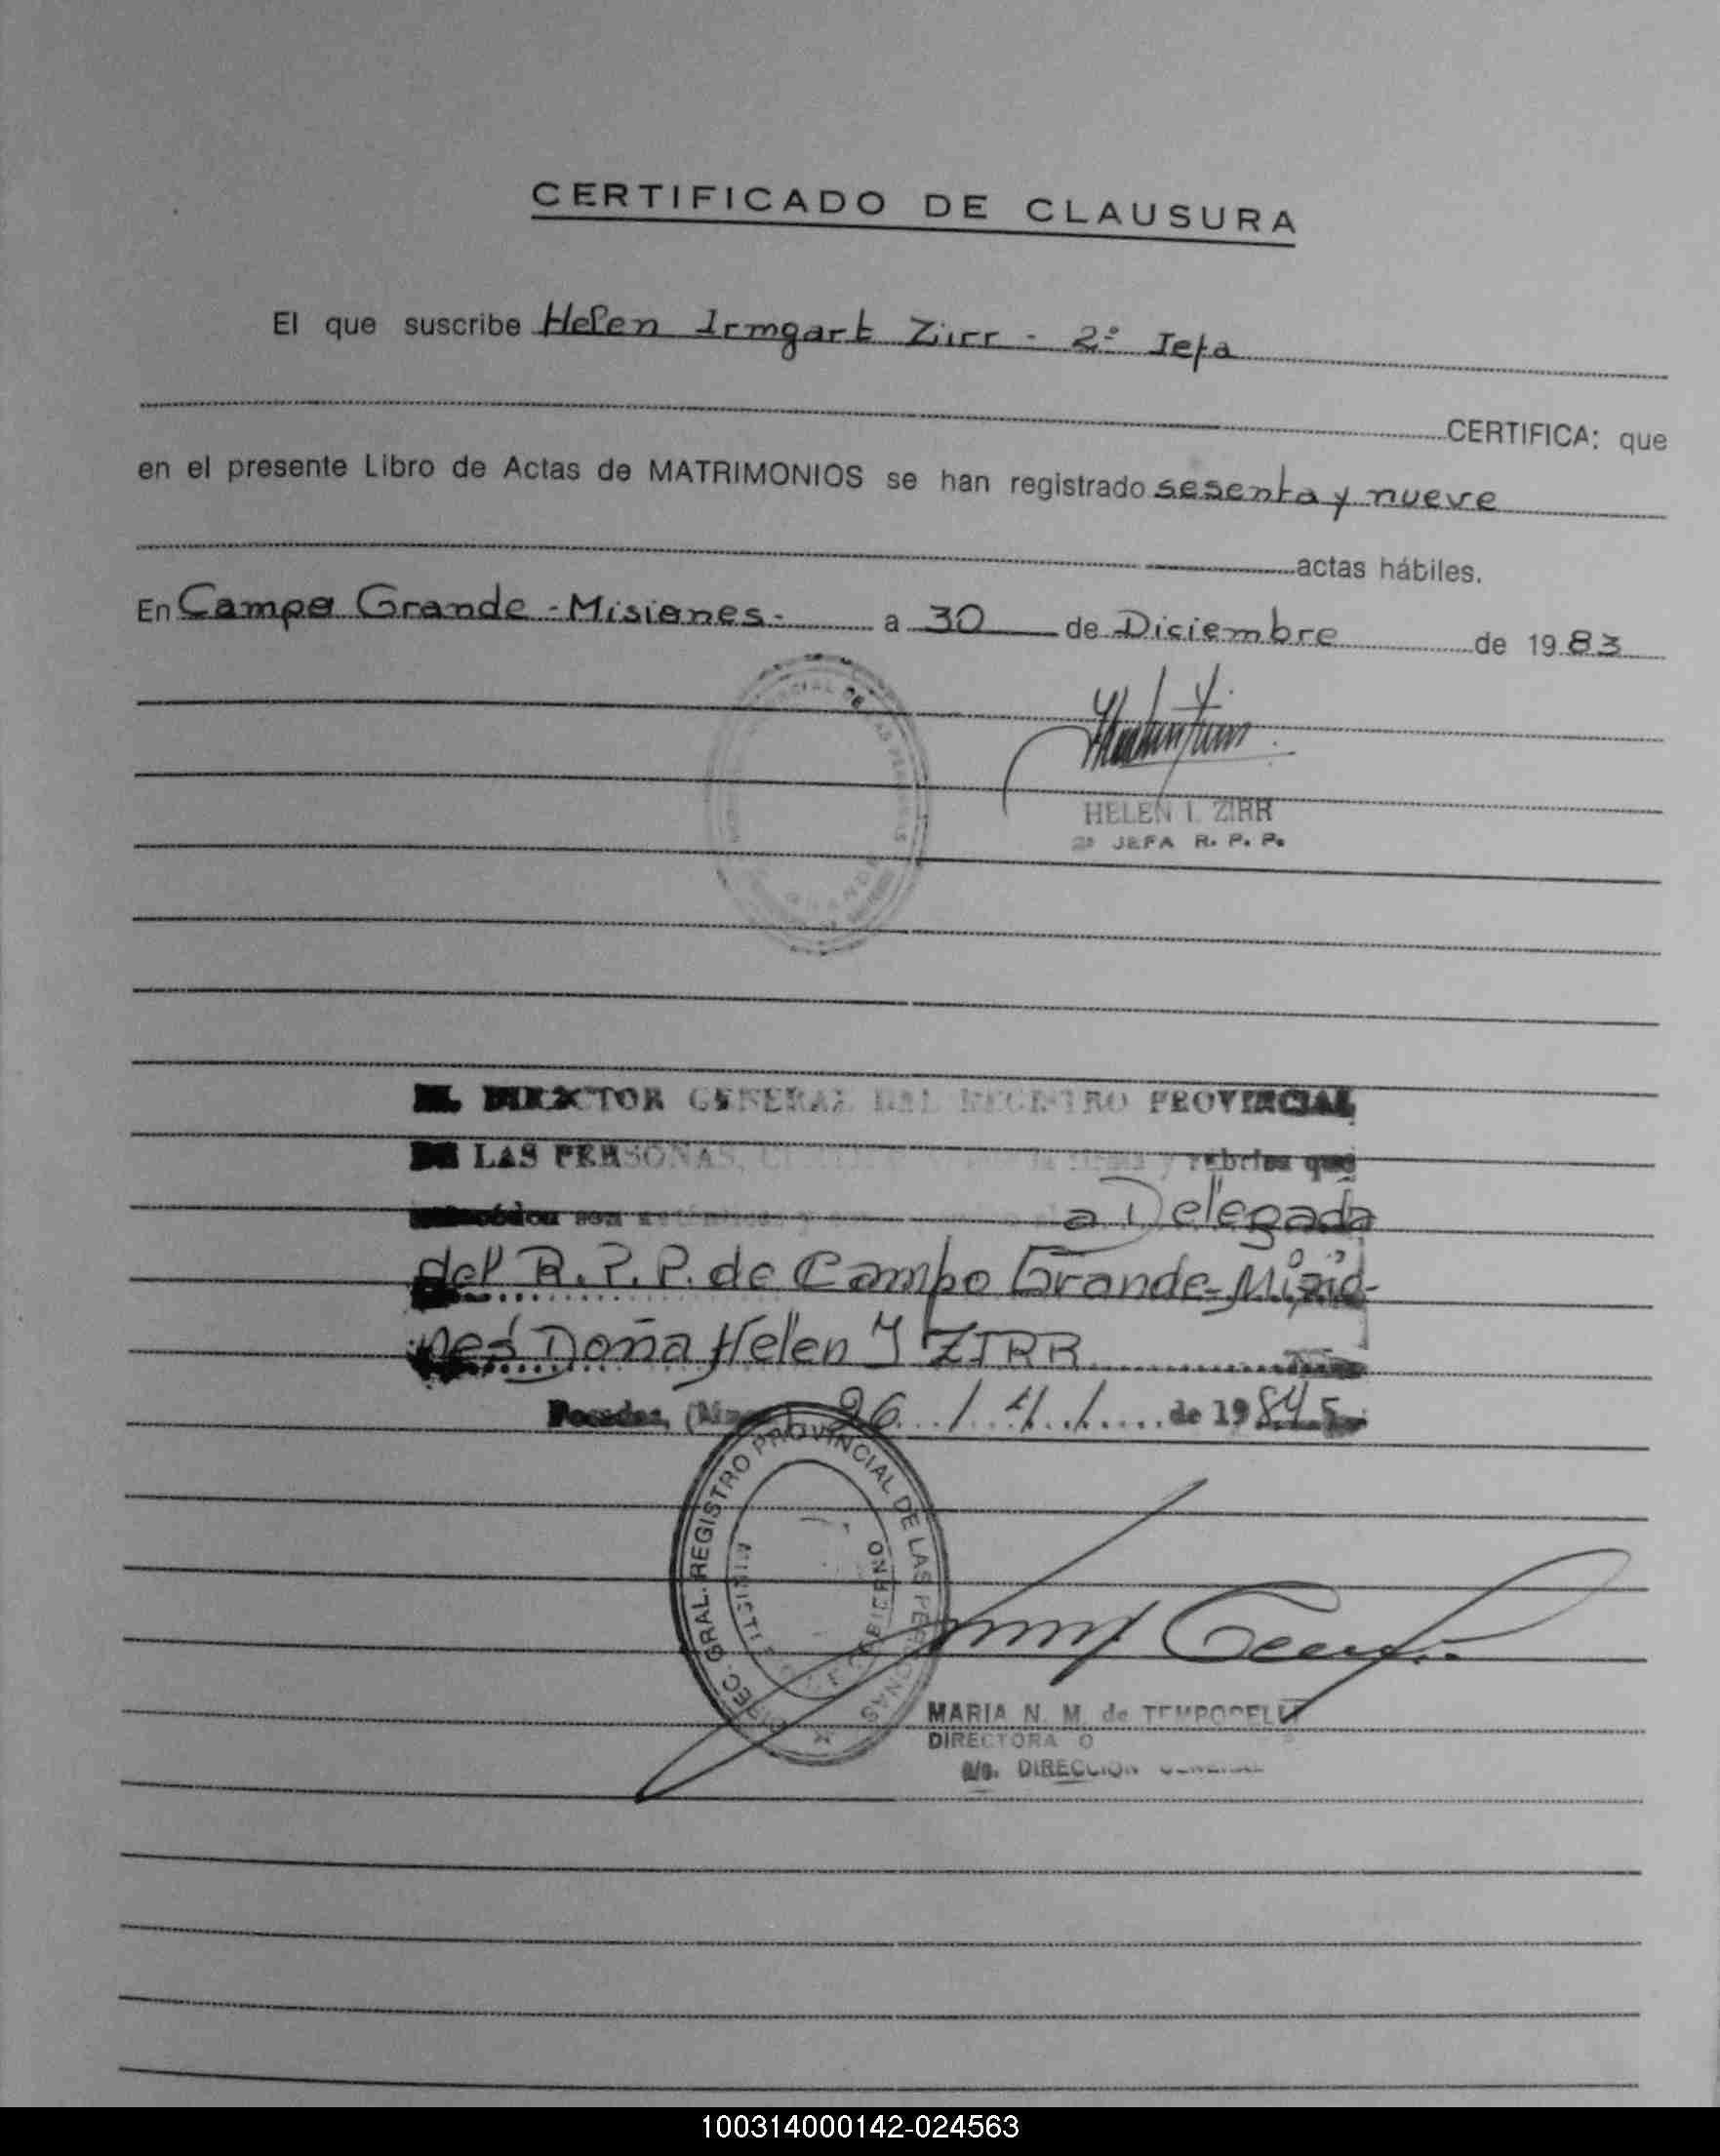 CERTIFICADO DE CLAUSURA
El que suscribe Helen Irmgart Zirr - 2º Jefa
CERTIFICA: que
en el presente Libro de Actas de MATRIMONIOS se han registrado sesenta y nueve
actas hábiles.
En Campo Grande - Misiones - a 30 de Diciembre de 1983
HELEN I. ZIRR
2º JEFA R. P. P.
EL DIRECTOR GENERAL DEL REGISTRO PROVINCIAL
DE LAS PERSONAS, la firma y rubrica que
son a Delegada
del R.P.P. de Campo Grande - Misio-
nes Doña Helen I ZIRR
Posadas, 26 / 4 / de 1984
DIREC. GRAL. REGISTRO PROVINCIAL DE LAS PERSONAS
GOBIERNO
MARIA N. M. de TEMPORELLI
DIRECTORA
a/c. DIRECCION GENERAL
100314000142-024563